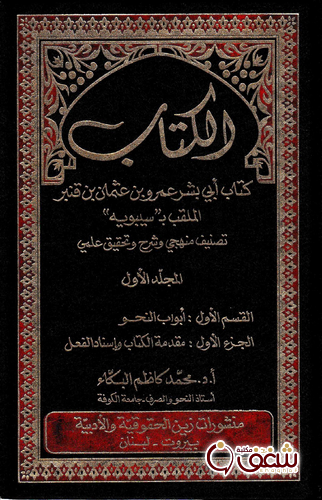 الكتاب
كتاب أبي بشر عمرو بن عثمان بن قنبر
الملقب بـ"سيبويه"
تصنيف منهجي وشرح وتحقيق علمي
المجلد الأول
القسم الأول : أبواب النحو
الجزء الأول : مقدمة الكتاب وإسناد الفعل
أ.د. محمد كاظم البكاء
أستاذ النحو والصرف - جامعة الكوفة
منشورات زين الحقوقية والأدبية
بيروت - لبنان
مكتبة
شغف